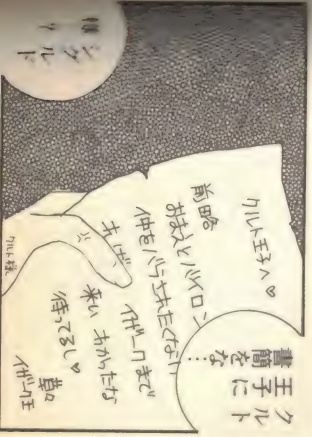 クルト王子に
書簡をな…
クルト王子へ♡
前略
おまえとバイロン
仲をバラされたくない
イザークまで
来い わかったな
待ってるし♡
草々
イザーク王
クルト様
シグルド